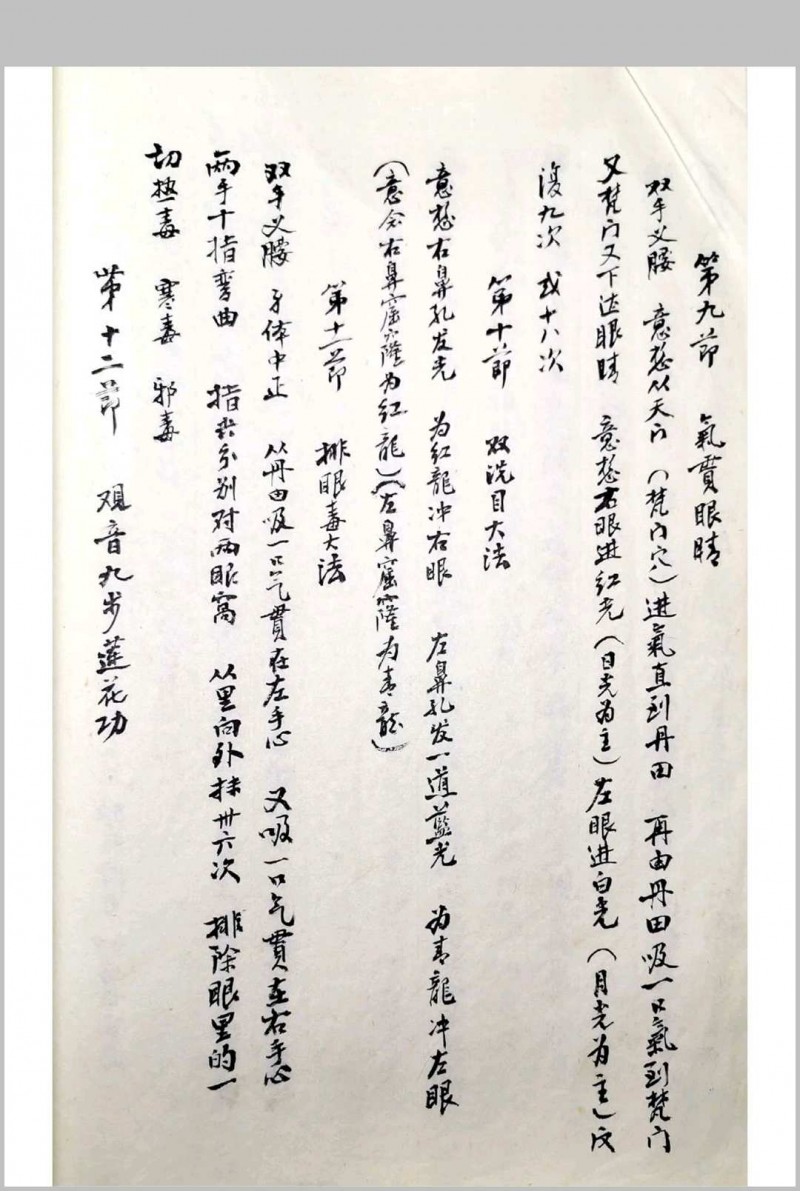 第九節　氣貫眼睛
双手义腰　意想从天门（梵门穴）进氣直到丹田　再由丹田吸一口氣到梵门
又梵门又下达眼睛　意想右眼进红光（日光为主）左眼进白光（月光为主）反
復九次　或十八次
第十節　双洗目大法
意想右鼻孔发光　为红龍冲右眼　左鼻孔发一道藍光　为青龍冲左眼
（意会右鼻窟窿为红龍）（左鼻窟窿为青龍）
第十一節　排眼毒大法
双手义腰　身体中正　从丹田吸一口气貫在左手心　又吸一口气貫在右手心
两手十指弯曲　指尖分别对两眼窩　从里向外抹卅六次　排除眼里的一
切热毒　寒毒　邪毒
第十二節　观音九步蓮花功